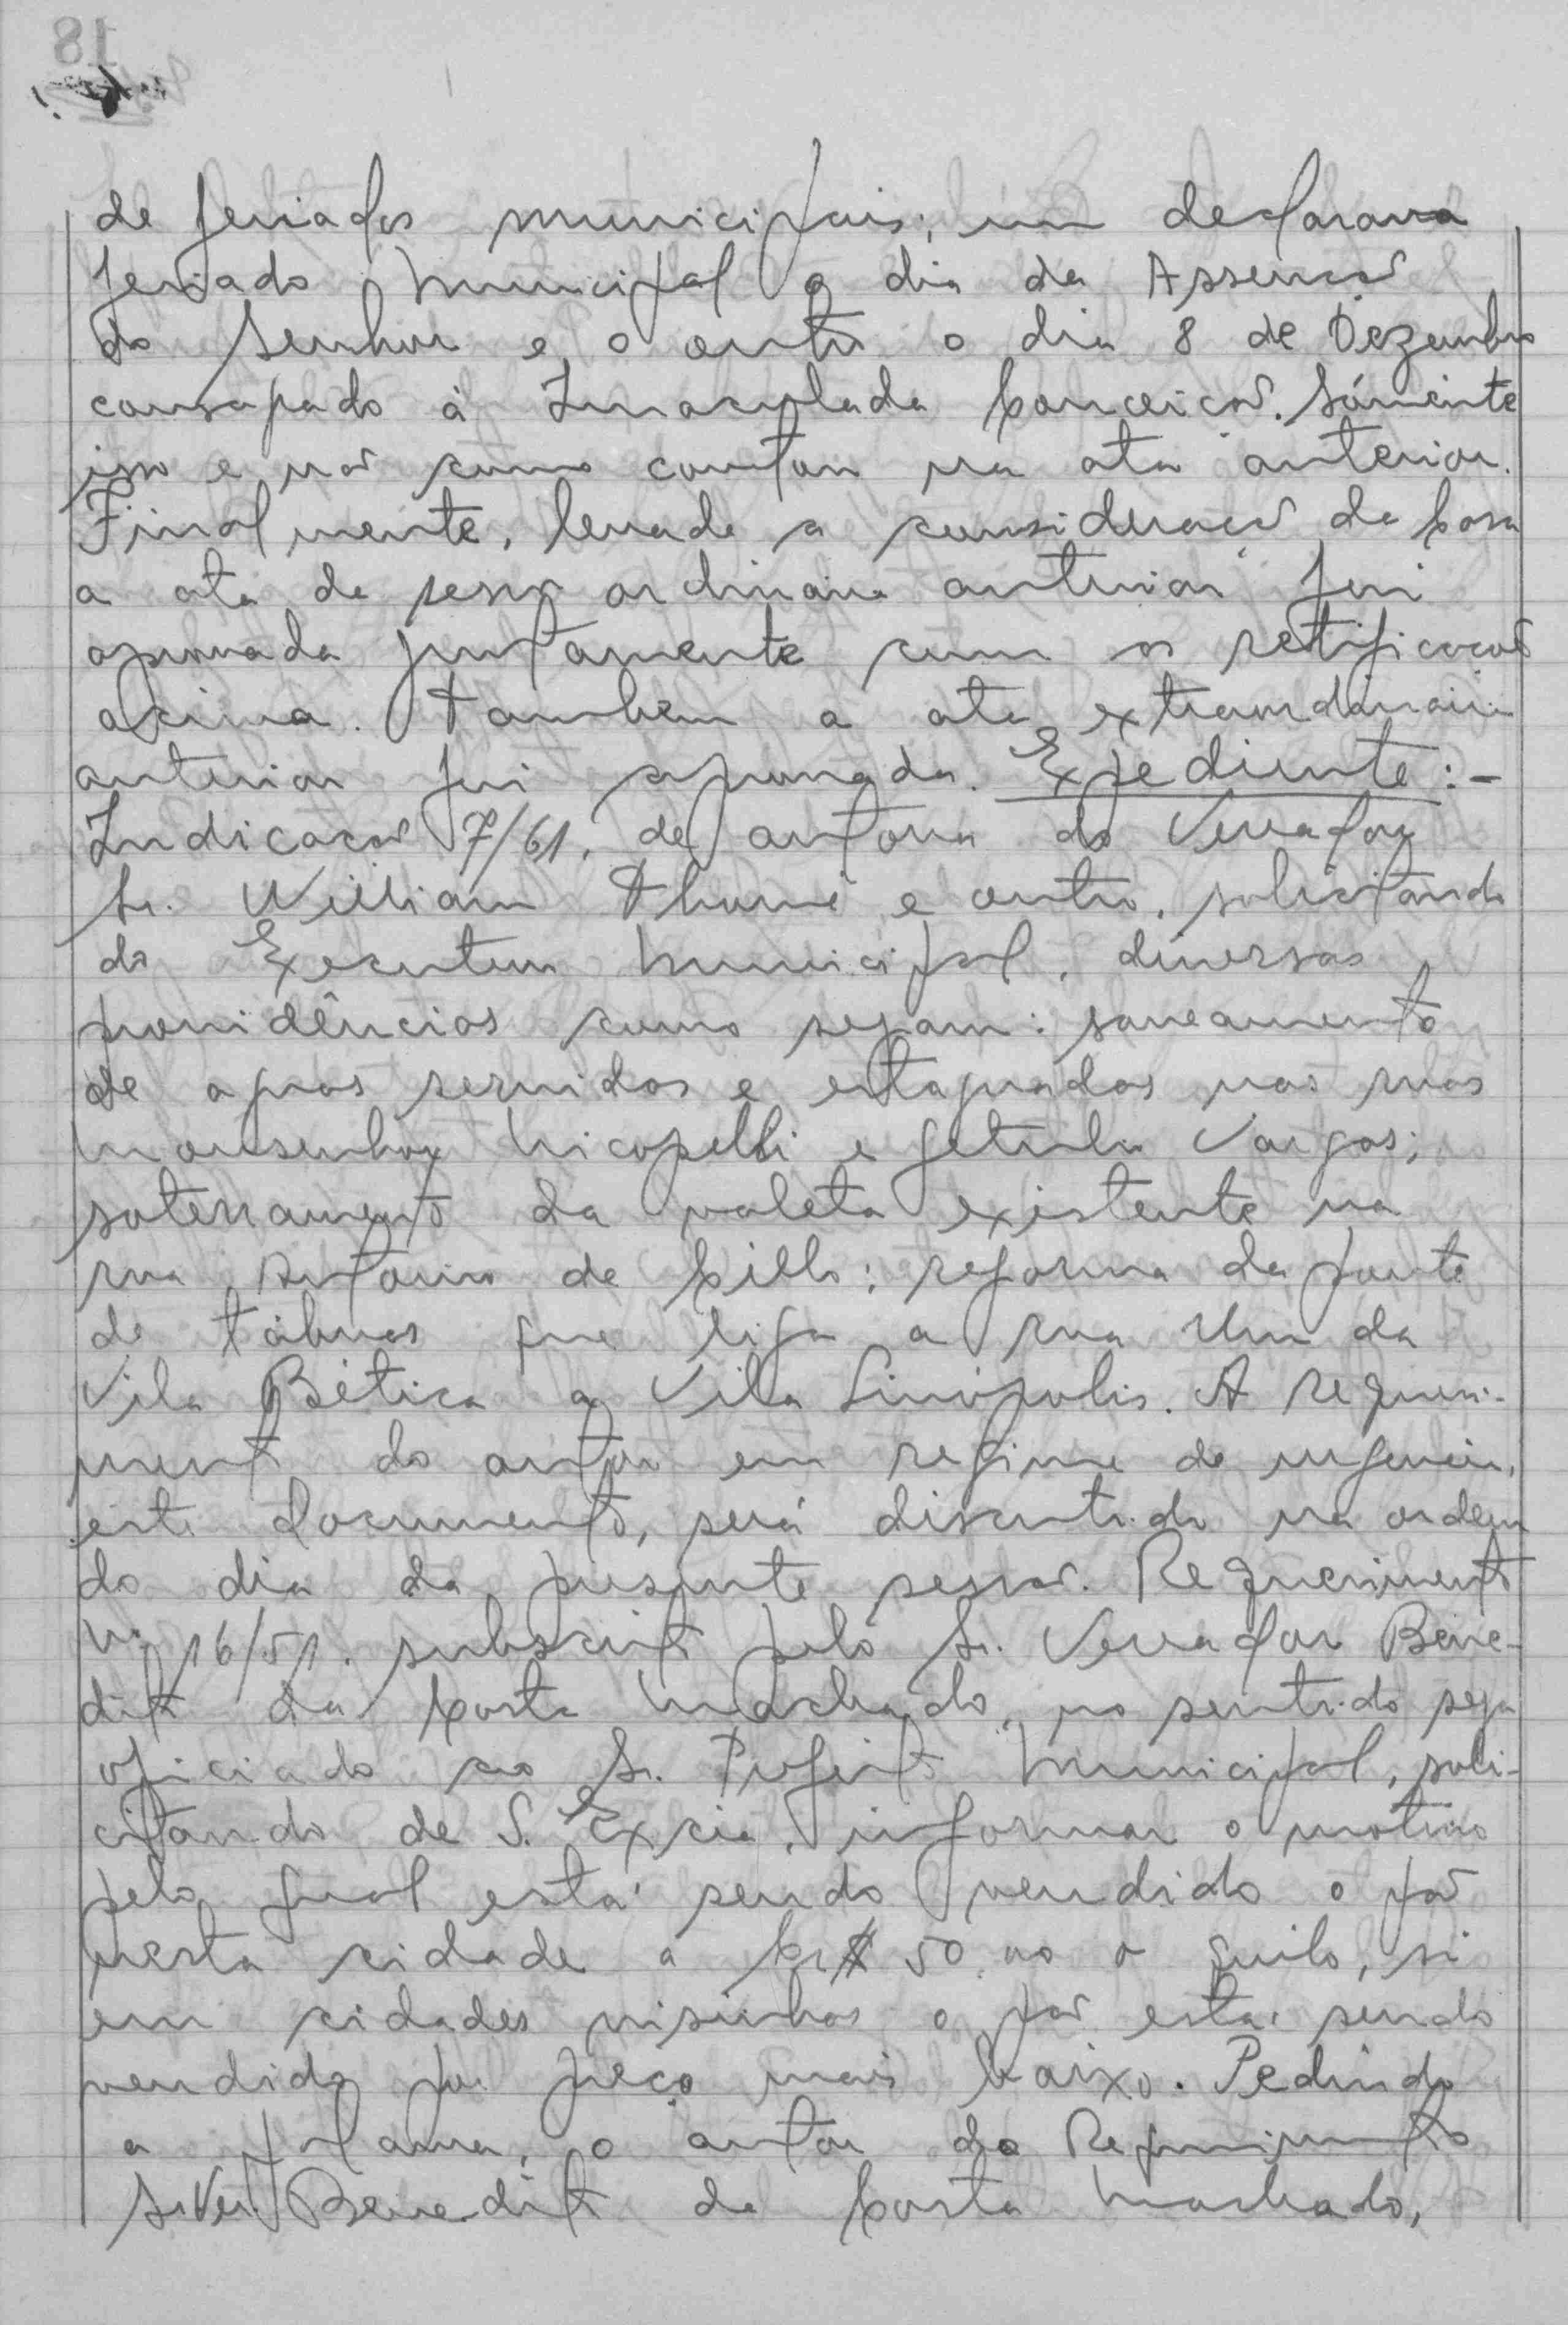 de feriados municipais; um declarava
feriado Municipal o dia da Assenção
do Senhor e o outro o dia 8 de Dezembro
consagrado à Imaculada Conceição. Sómente
isso e não como constou na ata anterior.
Finalmente, levada a consideração da Casa
a ata da sessão ordinaria anterior foi
aprovada juntamente com as retificações
acima. Tambem a ata extraordinaria
anterior foi aprovada. Expediente:-
Indicação 7/61, de autoria do Vereador
Sr. William Thomé e outro, solicitando
do Executivo Municipal, diversas
providências como sejam: saneamento
de aguas servidas e estagnadas nas ruas
Monsenhor Nicopelli e Getulio Vargas;
soterramento da valeta existente na
rua Antonio de Cillo; reforma da ponte
de tábuas que liga a rua Um da
Vila Bética a Vila Linópolis. A requeri-
mento do autor em regime de urgencia,
este documento, será discutido na ordem
do dia da presente sessão. Requerimento
N. 16/51, subscrito pelo Sr. Vereador Bene-
dito da Costa Machado, no sentido seja
oficiado ao Sr. Prefeito Municipal, soli-
citando de S. Excia. informar o motivo
pelo qual está sendo vendido o pão
nesta cidade a Cr$ 50,00 o quilo, si
em cidades visinhas o pão está sendo
vendido por preço mais baixo. Pedindo
a palavra, o autor do Requerimento
Sr. Ver. Benedito da Costa Machado,
18